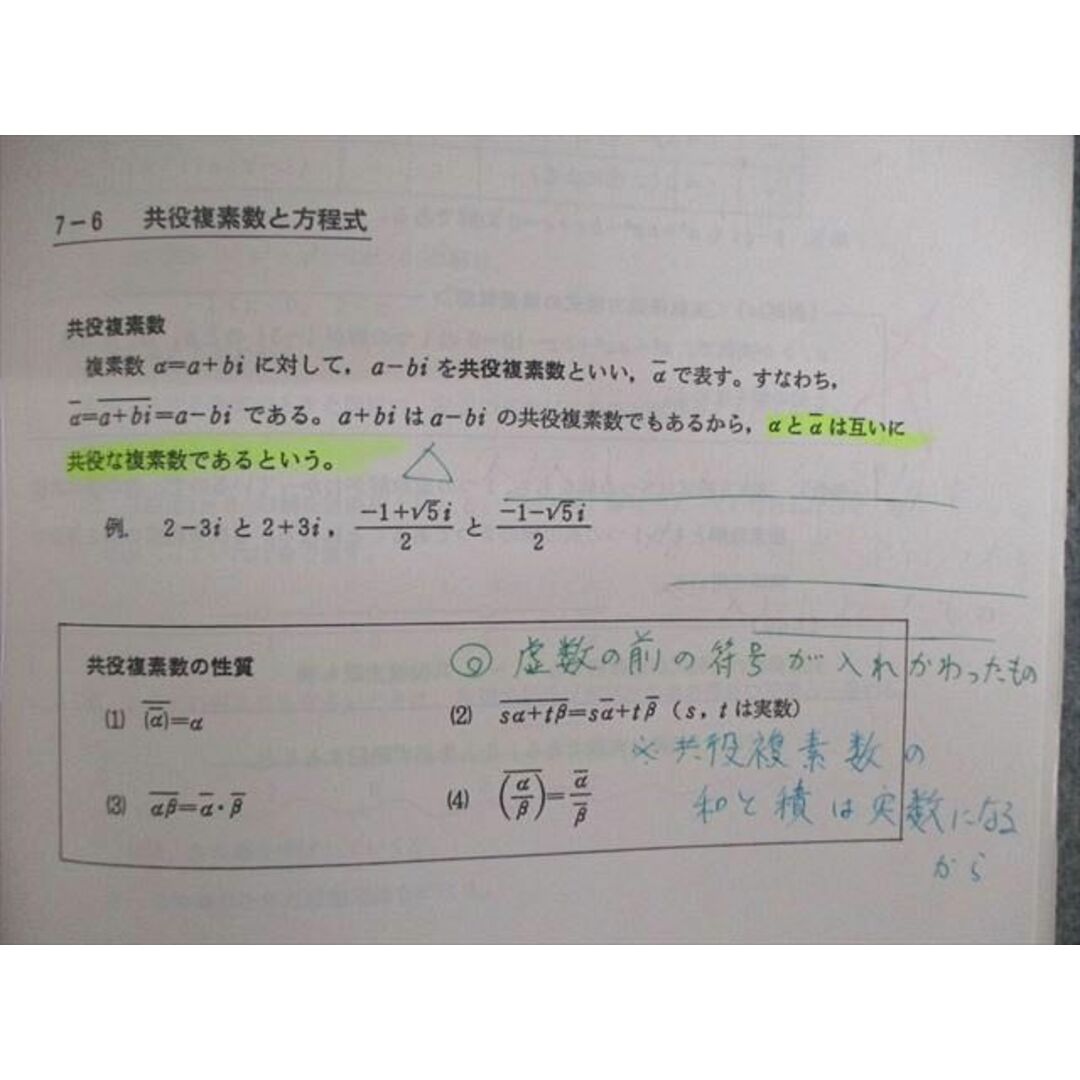 7-6 共役複素数と方程式
共役複素数
複素数 α=a+bi に対して, a-bi を共役複素数といい, α̅ で表す。すなわち,
α̅=\overline{a+bi}=a-bi である。a+bi は a-bi の共役複素数でもあるから, αとα̅は互いに
共役な複素数であるという。
例. 2-3i と 2+3i, \frac{-1+√5i}{2} と \frac{-1-√5i}{2}
共役複素数の性質
◎ 虚数の前の符号が入れかわったもの
(1) \overline{(α̅)}=α (2) \overline{sα+tβ}=sα̅+tβ̅ (s, t は実数)
※共役複素数の
(3) \overline{αβ}=α̅・β̅ (4) \overline{(\frac{α}{β})}=\frac{α̅}{β̅}
和と積は実数になる
から